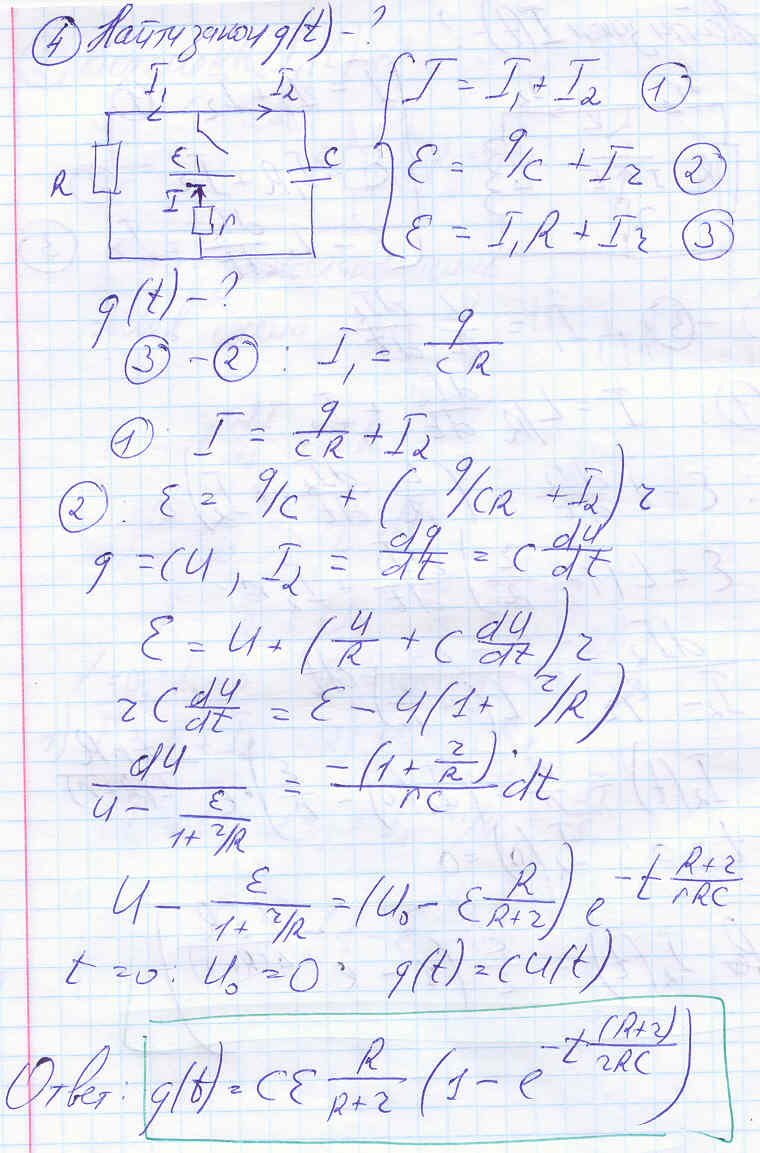 ④ Найти закон q(t) - ?
I₁ I₂
R ℰ I r C
I = I₁ + I₂ ①
ℰ = q/C + Ir ②
ℰ = I₁R + Ir ③
q(t) - ?
③ - ② : I₁ = q/(CR)
① : I = q/(CR) + I₂
② : ℰ = q/C + (q/CR + I₂) r
q = CU, I₂ = dq/dt = C dU/dt
ℰ = U + (U/R + C dU/dt) r
rC dU/dt = ℰ - U(1 + r/R)
dU/(U - ℰ/(1 + r/R)) = -(1 + r/R)/(rC) · dt
U - ℰ/(1 + r/R) = (U₀ - ℰ R/(R+r)) e^(-t (R+r)/(rRC))
t = 0 : U₀ = 0 ; q(t) = CU(t)
Ответ: q(t) = Cℰ R/(R+r) (1 - e^(-t (R+r)/(rRC)))